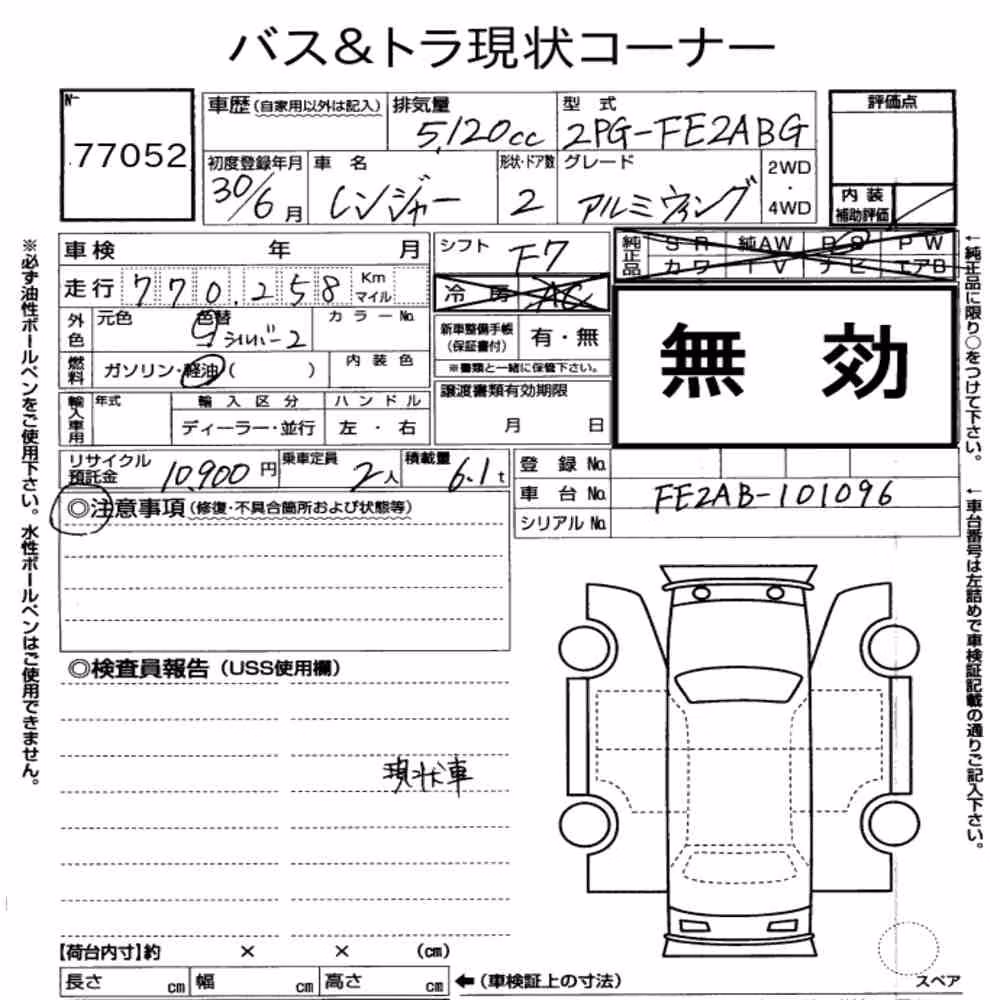 バス&トラ現状コーナー
No.
77052
車歴(自家用以外は記入)
排気量
5,120cc
型式
2PG-FE2ABG
評価点
内装
補助評価
初度登録年月
30/6月
車名
レンジャー
形状・ドア数
2
グレード
アルミウィング
2WD
・
4WD
車検 年 月
走行 770,258 Km
マイル
外色
元色
色替
シルバー2
カラーNo.
燃料
ガソリン・軽油( )
内装色
輸入車用
年式
輸入区分
ディーラー・並行
ハンドル
左・右
シフト
F7
冷房 AC
新車整備手帳
(保証書付)
有・無
※書類と一緒に保管下さい。
譲渡書類有効期限
月 日
純正品
SR 純AW PS PW
カワ TV ナビ エアB
無効
リサイクル
預託金
10,900円
乗車定員
2人
積載量
6.1t
登録No.
車台No.
FE2AB-101096
シリアルNo.
◎注意事項(修復・不具合箇所および状態等)
◎検査員報告(USS使用欄)
現状車
【荷台内寸】約 × × (cm)
長さ cm 幅 cm 高さ cm ←(車検証上の寸法)
スペア
※必ず油性ボールペンをご使用下さい。水性ボールペンはご使用できません。
←純正品に限り○をつけて下さい。
←車台番号は左詰めで車検証記載の通りご記入下さい。